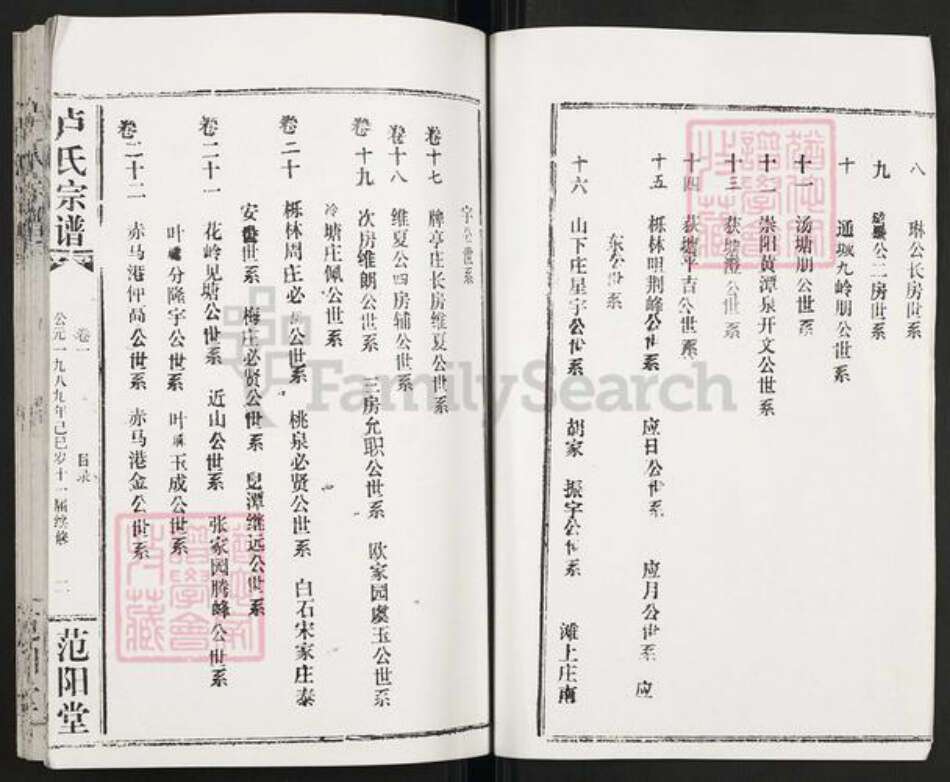 八 琳公长房世系
九 公二房世系
十 通城九岭朋公世系
十一 汤塘朋公世系
十二 崇阳黄潭泉开文公世系
十三 荻塘澄公世系
十四 荻塘平吉公世系
十五 栎林明荆峰公世系 应日公世系 应月公世系 应
东公世系
十六 山下庄星宇公世系 胡家 振宇公世系 滩上庄南
宇公世系
卷十七 牌亭庄长房维夏公世系
卷十八 维夏公四房辅公世系
卷十九 次房维朗公世系 三房允职公世系 欧家园虞玉公世系
冷塘庄佩公世系
卷二十 栎林周庄必公世系 桃泉必贤公世系 白石宋家庄泰
安公世系 梅庄必贤公世系 潭继远公世系
卷二十一 花岭见塘公世系 近山公世系 张家园腾峰公世系
叶分隆宇公世系 叶玉成公世系
卷二十二 赤马港仲高公世系 赤马港金公世系
卢氏宗谱
卷一 目录
公元一九八九年己巳岁十一届续修
二
范阳堂
FamilySearch